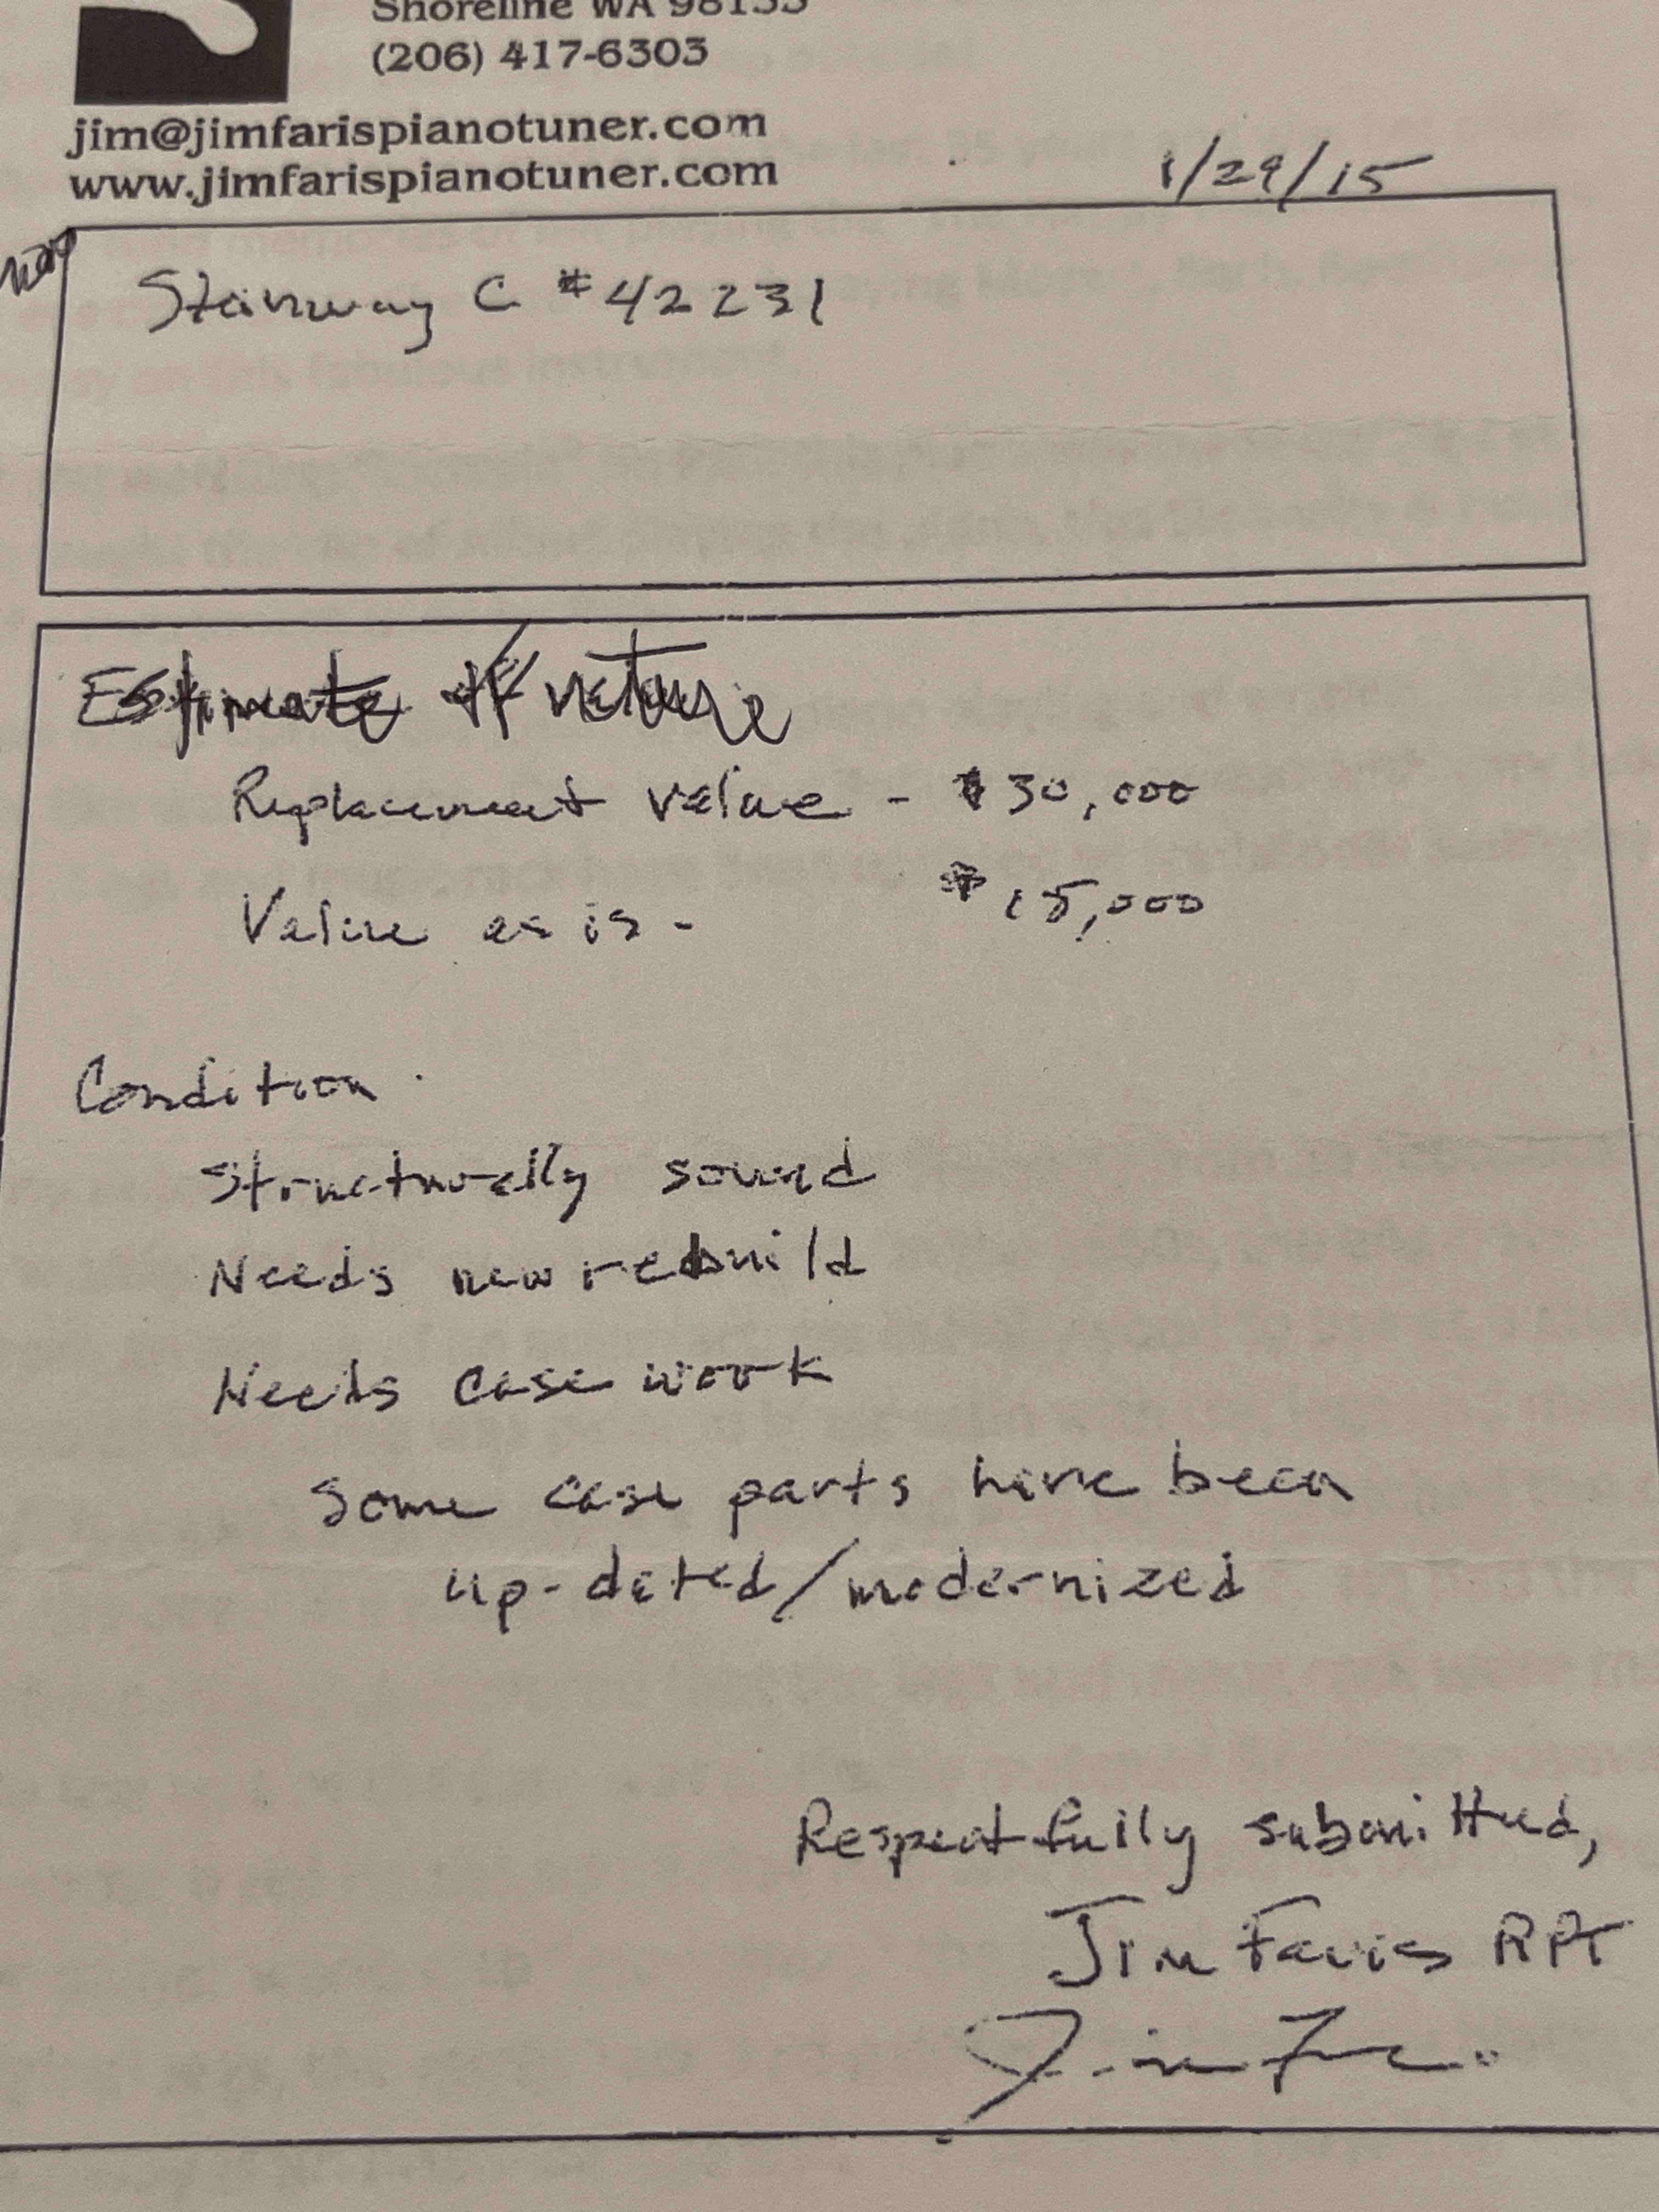 Shoreline WA 98133
(206) 417-6303
jim@jimfarispianotuner.com
www.jimfarispianotuner.com
1/29/15
Steinway C #42231
Estimate of value
Replacement value - $30,000
Value as is - $15,000
Condition
Structurally sound
Needs new rebuild
Needs case work
Some case parts have been
up-dated/modernized
Respectfully submitted,
Jim Faris RPT